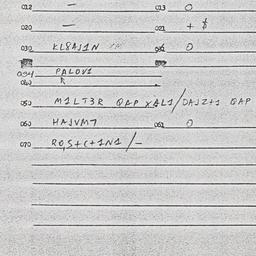 012 — 013 0
020 — 021 + $
030 KL8AJ1N 0
034 PALOV1
040 R
050 M1LT3R QAP XAL1/DAJZ+1 QAP
060 HAJVM7 061 0
070 R0,S+C+1N1/—